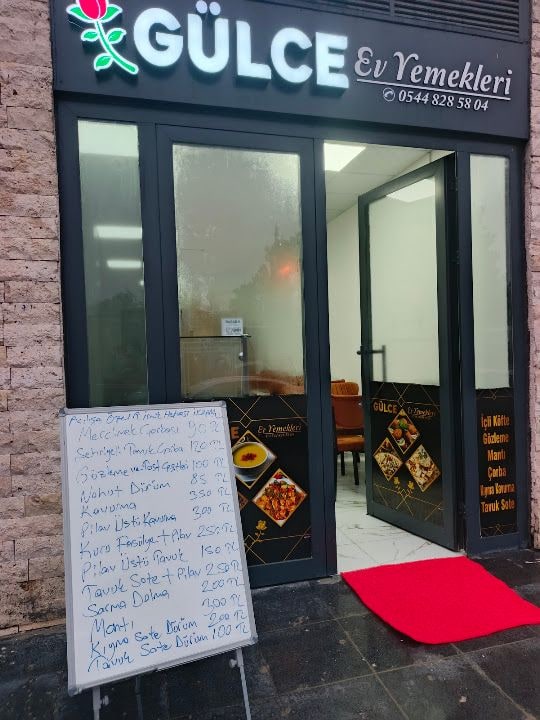 GÜLCE
Ev Yemekleri
0544 828 58 04
Açılışa Özel
Mercimek Çorbası 90 TL
Şehriyeli Tavuk Çorba 120 TL
Gözleme ve Tost Çeşitleri 100 TL
Nohut Dürüm 85 TL
Kavurma 350 TL
Pilav Üstü Kavurma 300 TL
Kuru Fasulye + Pilav 250 TL
Pilav Üstü Tavuk 150 TL
Tavuk Sote + Pilav 250 TL
Sarma Dolma 200 TL
Mantı 300 TL
Kıyma Sote Dürüm 200 TL
Tavuk Sote Dürüm 100 TL
LCE
Ev Yemekleri
GÜLCE
Ev Yemekleri
İçli Köfte
Gözleme
Mantı
Çorba
Kıyma Kavurma
Tavuk Sote